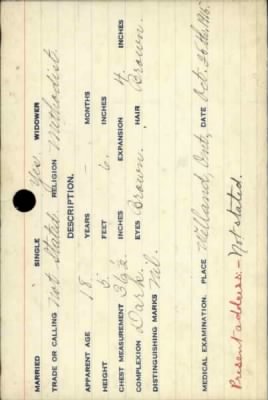 MARRIED SINGLE Yes WIDOWER
TRADE OR CALLING Not Stated. RELIGION Methodist.
DESCRIPTION.
APPARENT AGE 18 YEARS — MONTHS
HEIGHT 5 FEET 6 INCHES
CHEST MEASUREMENT 36½ INCHES EXPANSION 4 INCHES
COMPLEXION Dark. EYES Brown. HAIR Brown.
DISTINGUISHING MARKS Nil.
MEDICAL EXAMINATION. PLACE Welland, Ont, DATE Oct. 26th, 1915.
Present address:- Not stated.